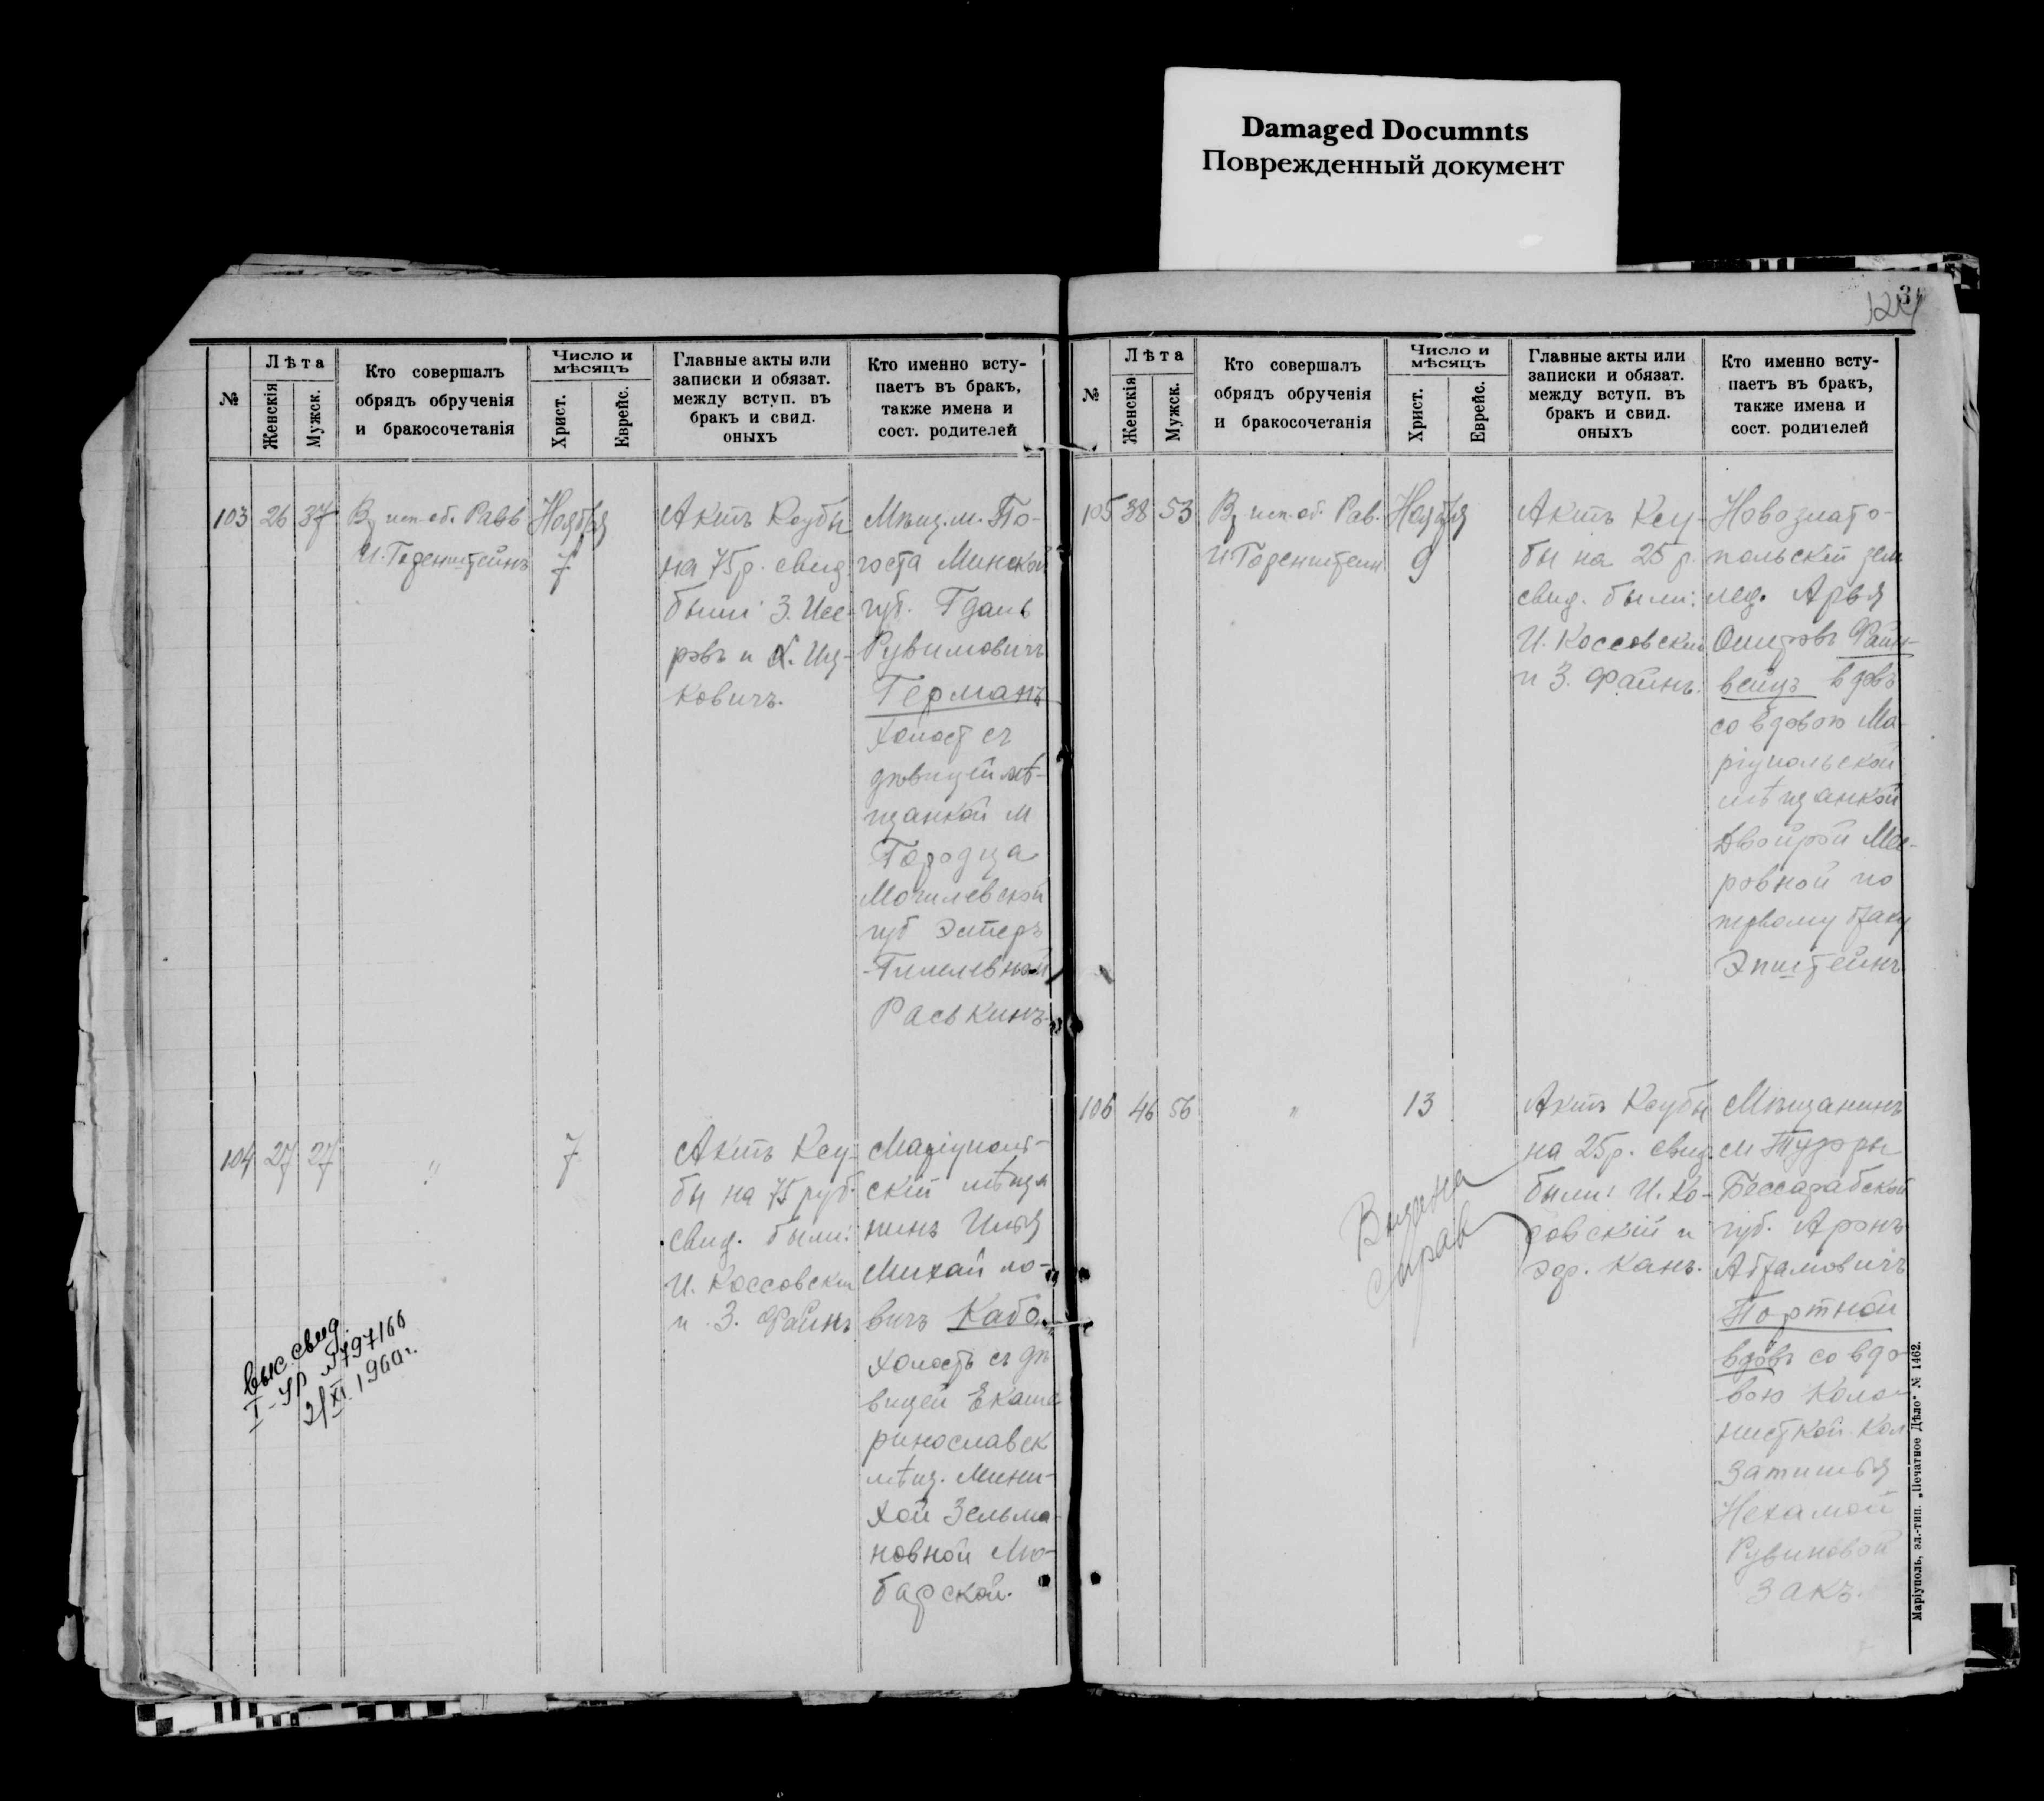 Damaged Documnts
Поврежденный документ
№
Лѣта
Женскія
Мужск.
Кто совершалъ
обрядъ обрученія
и бракосочетанія
Число и
мѣсяцъ
Христ.
Еврейс.
Главные акты или
записки и обязат.
между вступ. въ
бракъ и свид.
оныхъ
Кто именно всту-
паетъ въ бракъ,
также имена и
сост. родителей
103 26 37
исп. об. Равв
Ноября
7
Актъ Ксубы
на 75 р. свид
были З. Исе-
ровъ и Х. Иц-
ковичъ.
Мѣщ. м. По-
госта Минской
губ. Гдаль
Рувимовичъ
Германъ
холост съ
дѣвицей мѣ-
щанкой м
Городца
Могилевской
губ Эстеръ
Гилелевной
Раськинъ
104 27 27
"
7
Актъ Ксу-
бы на 75 руб.
свид. были:
И. Коссовскій
и З. Файнъ
Маріуполь-
скій мѣща
нинъ Илья
Михайло-
вичъ Кабо
холостъ съ дѣ
вицей Екате
ринославск
мѣщ. Мини-
хой Зельма-
новной Лю-
барской.
выс. свид.
I-УР №797166
2/XI 1960 г.
124
3
№
Лѣта
Женскія
Мужск.
Кто совершалъ
обрядъ обрученія
и бракосочетанія
Число и
мѣсяцъ
Христ.
Еврейс.
Главные акты или
записки и обязат.
между вступ. въ
бракъ и свид.
оныхъ
Кто именно всту-
паетъ въ бракъ,
также имена и
сост. родителей
105 38 53
исп. об. Рав.
Ноября
9
Актъ Ксу-
бы на 25 р.
свид. были:
И. Коссовскій
и З. Файнъ.
Новозлато-
польскій зем
лед. Арья
Ошеровъ Файн-
вейцъ вдовъ
со вдовою Ма-
ріупольской
мѣщанкой
Двойрой Меи-
ровной по
первому браку
Эпштейнъ
106 46 56
"
13
Актъ Ксубы
на 25 р. свид.
были: И. Ко-
ровскій и
Эфр. Канъ.
Мѣщанинъ
м Тузоры
Бессарабской
губ. Аронъ
Абрамовичъ
Портной
вдовъ со вдо-
вою Коло-
нисткой Кол
Затишья
Нехамой
Рувиновой
Закъ.
Выдана
справ
Маріуполь, эл.-тип. „Печатное Дѣло“ № 1462.